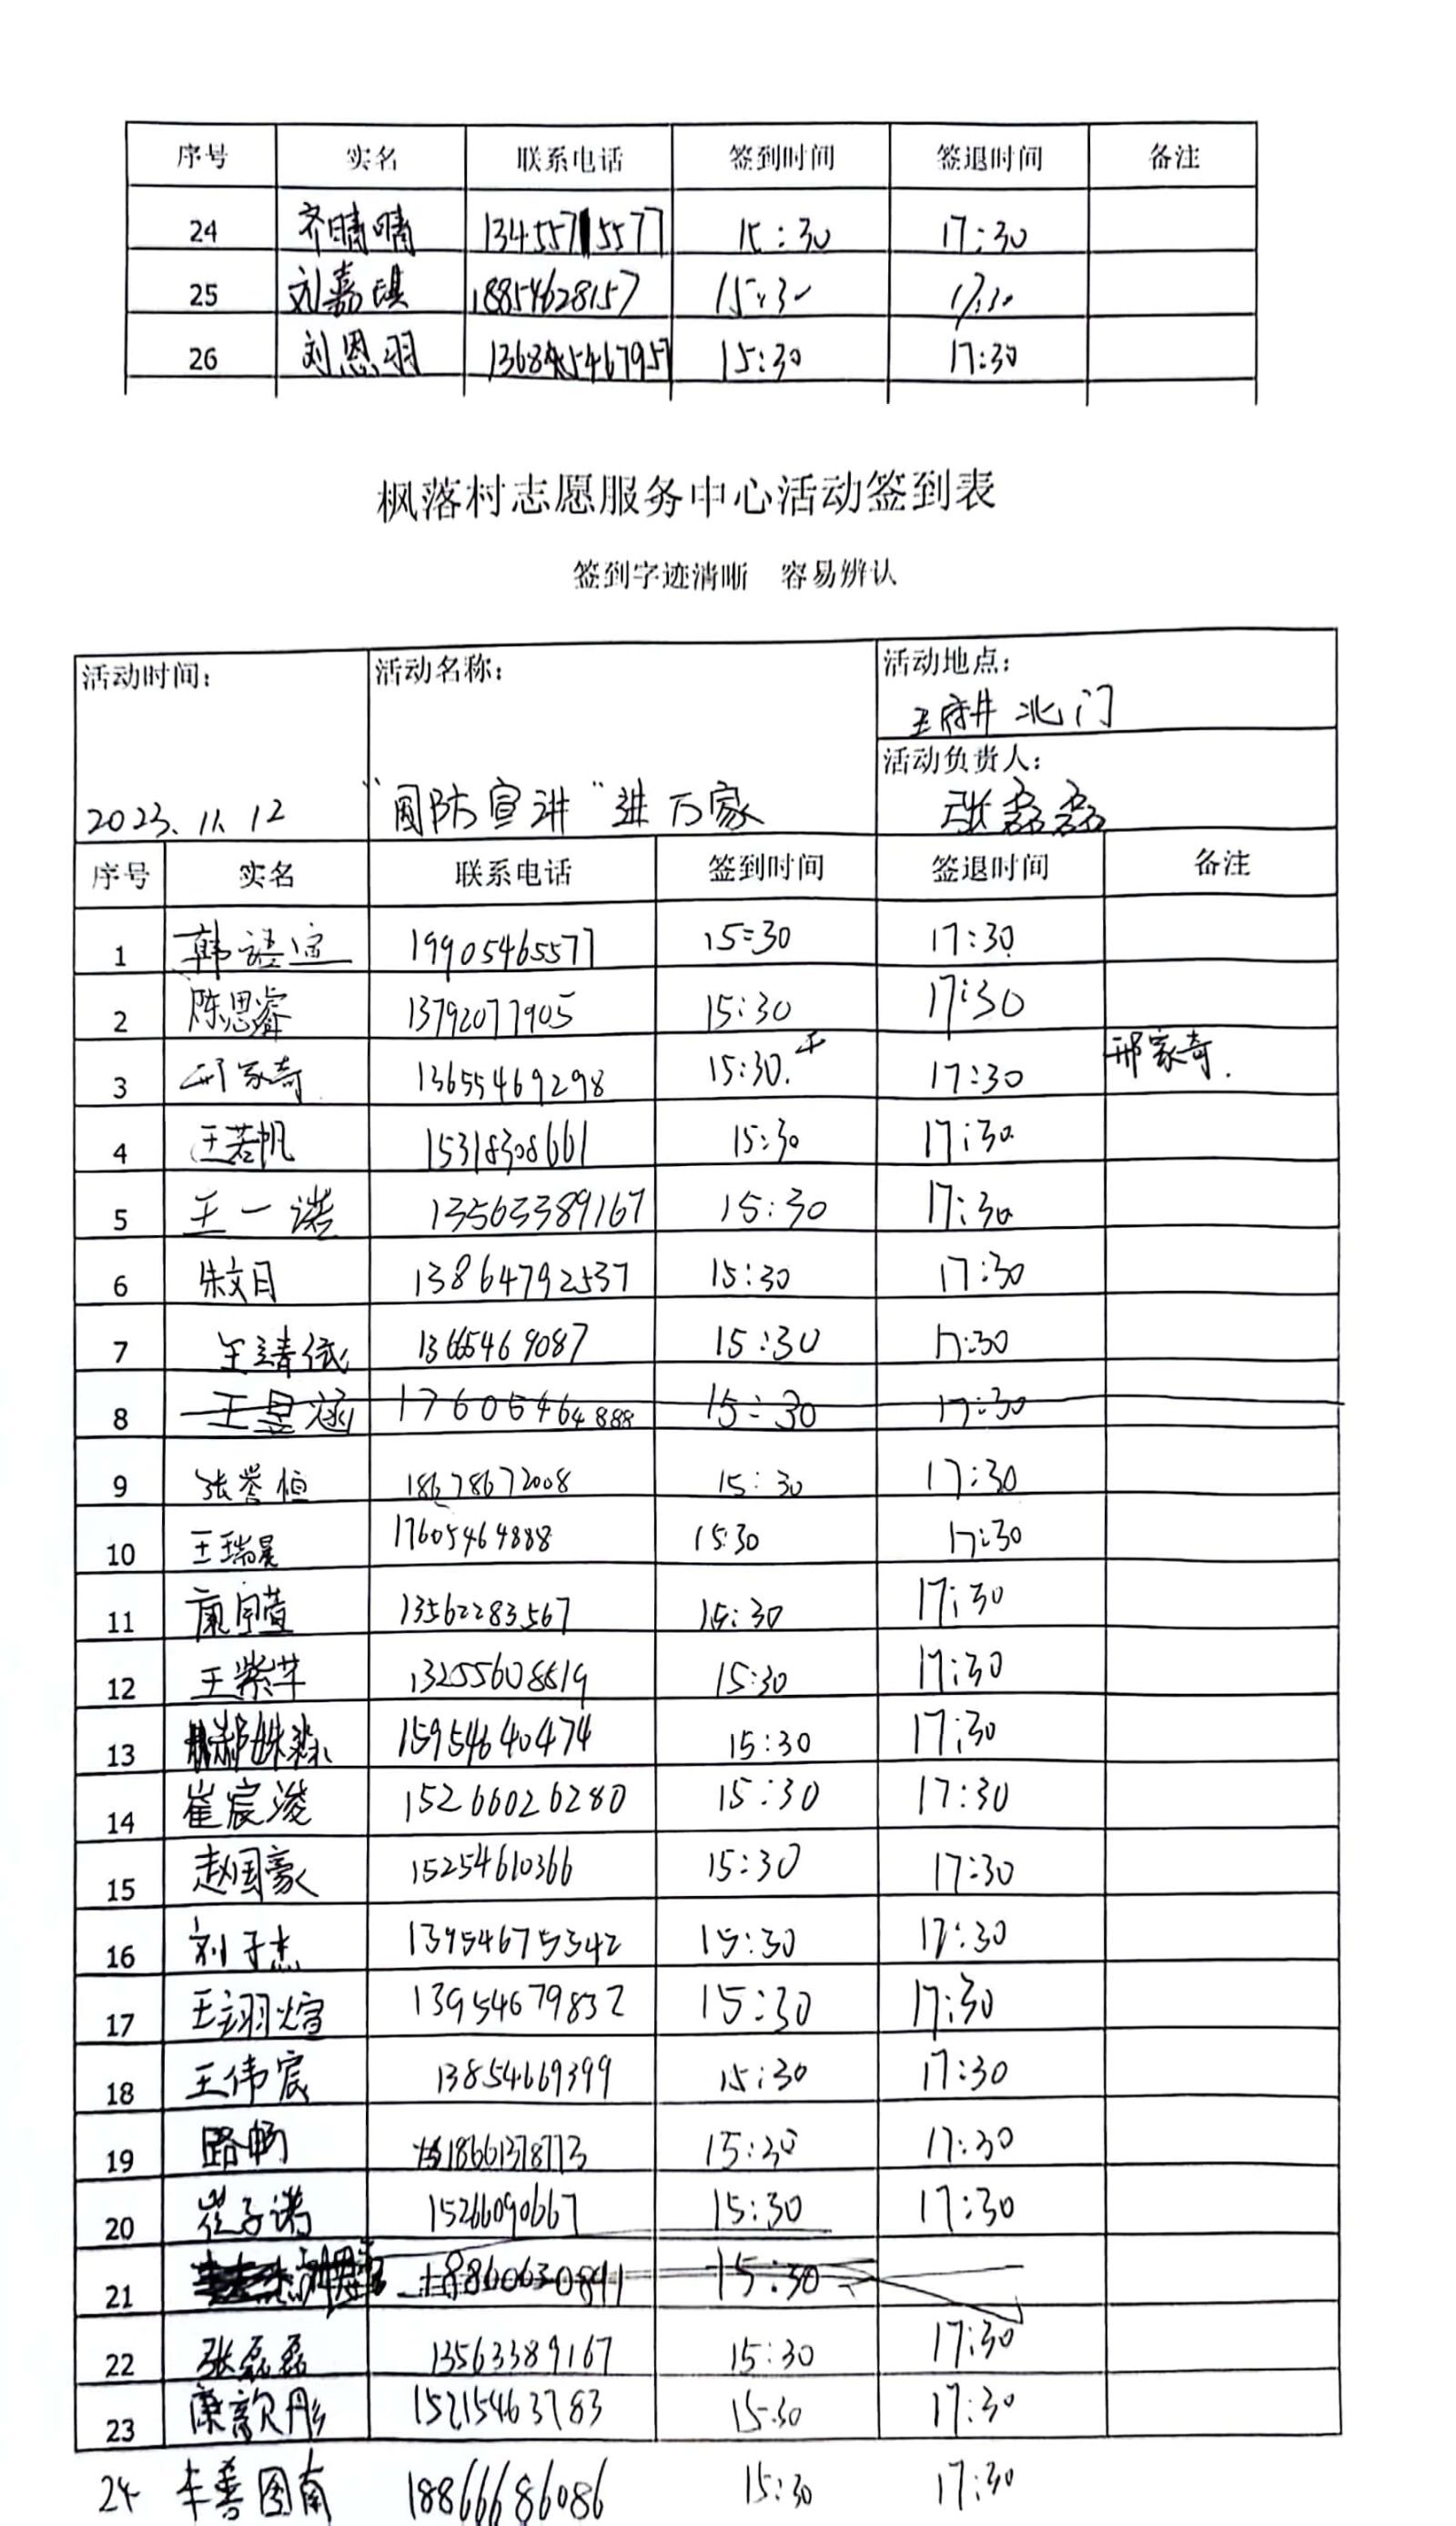 序号 实名 联系电话 签到时间 签退时间 备注
24 齐晴晴 13455715577 15:30 17:30
25 刘嘉琪 18854628157 15:30 17:30
26 刘恩羽 15:30 17:30
枫落村志愿服务中心活动签到表
签到字迹清晰 容易辨认
活动时间: 活动名称: 活动地点:
王府井北门
活动负责人:
2023.11.12 “国防宣讲”进万家 张磊磊
序号 实名 联系电话 签到时间 签退时间 备注
1 19905465577 15:30 17:30
2 陈思睿 13792077905 15:30 17:30
3 邢家奇 13655469298 15:30. 17:30 邢家奇.
4 王若帆 15318308661 15:30 17:30
5 王一诺 13563389167 15:30 17:30
6 朱文月 13864792537 15:30 17:30
7 13665469087 15:30 17:30
8 王昱涵 17605464888 15:30 17:30
9 张誉恒 18678672008 15:30 17:30
10 王瑞晨 17605464888 15:30 17:30
11 康宇萱 13562283567 15:30 17:30
12 王紫芊 15:30 17:30
13 15954640474 15:30 17:30
14 崔宸浚 15266026280 15:30 17:30
15 赵国豪 15254610366 15:30 17:30
16 刘子杰 13954675342 15:30 17:30
17 王翊煊 13954679832 15:30 17:30
18 王伟宸 13854669399 15:30 17:30
19 路畅 18661378773 15:30 17:30
20 崔子诺 15266090667 15:30 17:30
21 18860630891 15:30
22 张磊磊 13563389167 15:30 17:30
23 康歆彤 15215463783 15:30 17:30
24 图南 18866686086 15:30 17:30